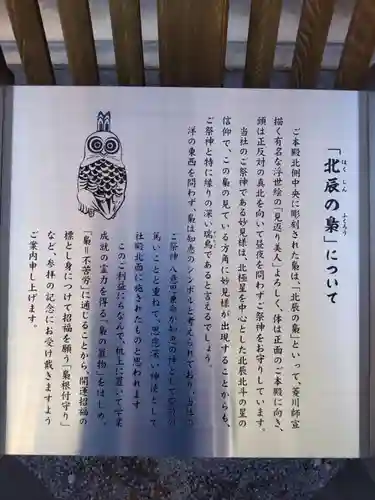 「北辰の梟」について
ほくしん ふくろう
ご本殿北側中央に彫刻された梟は、「北辰の梟」といって、菱川師宣
描く有名な浮世絵の「見返り美人」よろしく、体は正面のご本殿に向き、
頭は正反対の真北を向いて昼夜を問わずご祭神をお守りしています。
当社のご祭神である妙見様は、北極星を中心とした北辰北斗の星の
信仰で、この梟の見ている方角に妙見様が出現することからも、
ご祭神と特に縁りの深い瑞鳥であると言えるでしょう。
洋の東西を問わず、梟は知恵のシンボルと考えられており、当社の
ご祭神 八意思兼命が知恵の神として
篤いことと重ねて、思慮深い神使として
社殿北面に施されたものと思われます
このご利益にちなんで、机上に置いて学業
成就の霊力を得る「梟の置物」をはじめ、
「梟=不苦労」に通じることから、開運招福の
標とし身につけて招福を願う「梟根付守り」
など、参拝の記念にお受け戴きますよう
ご案内申し上げます。